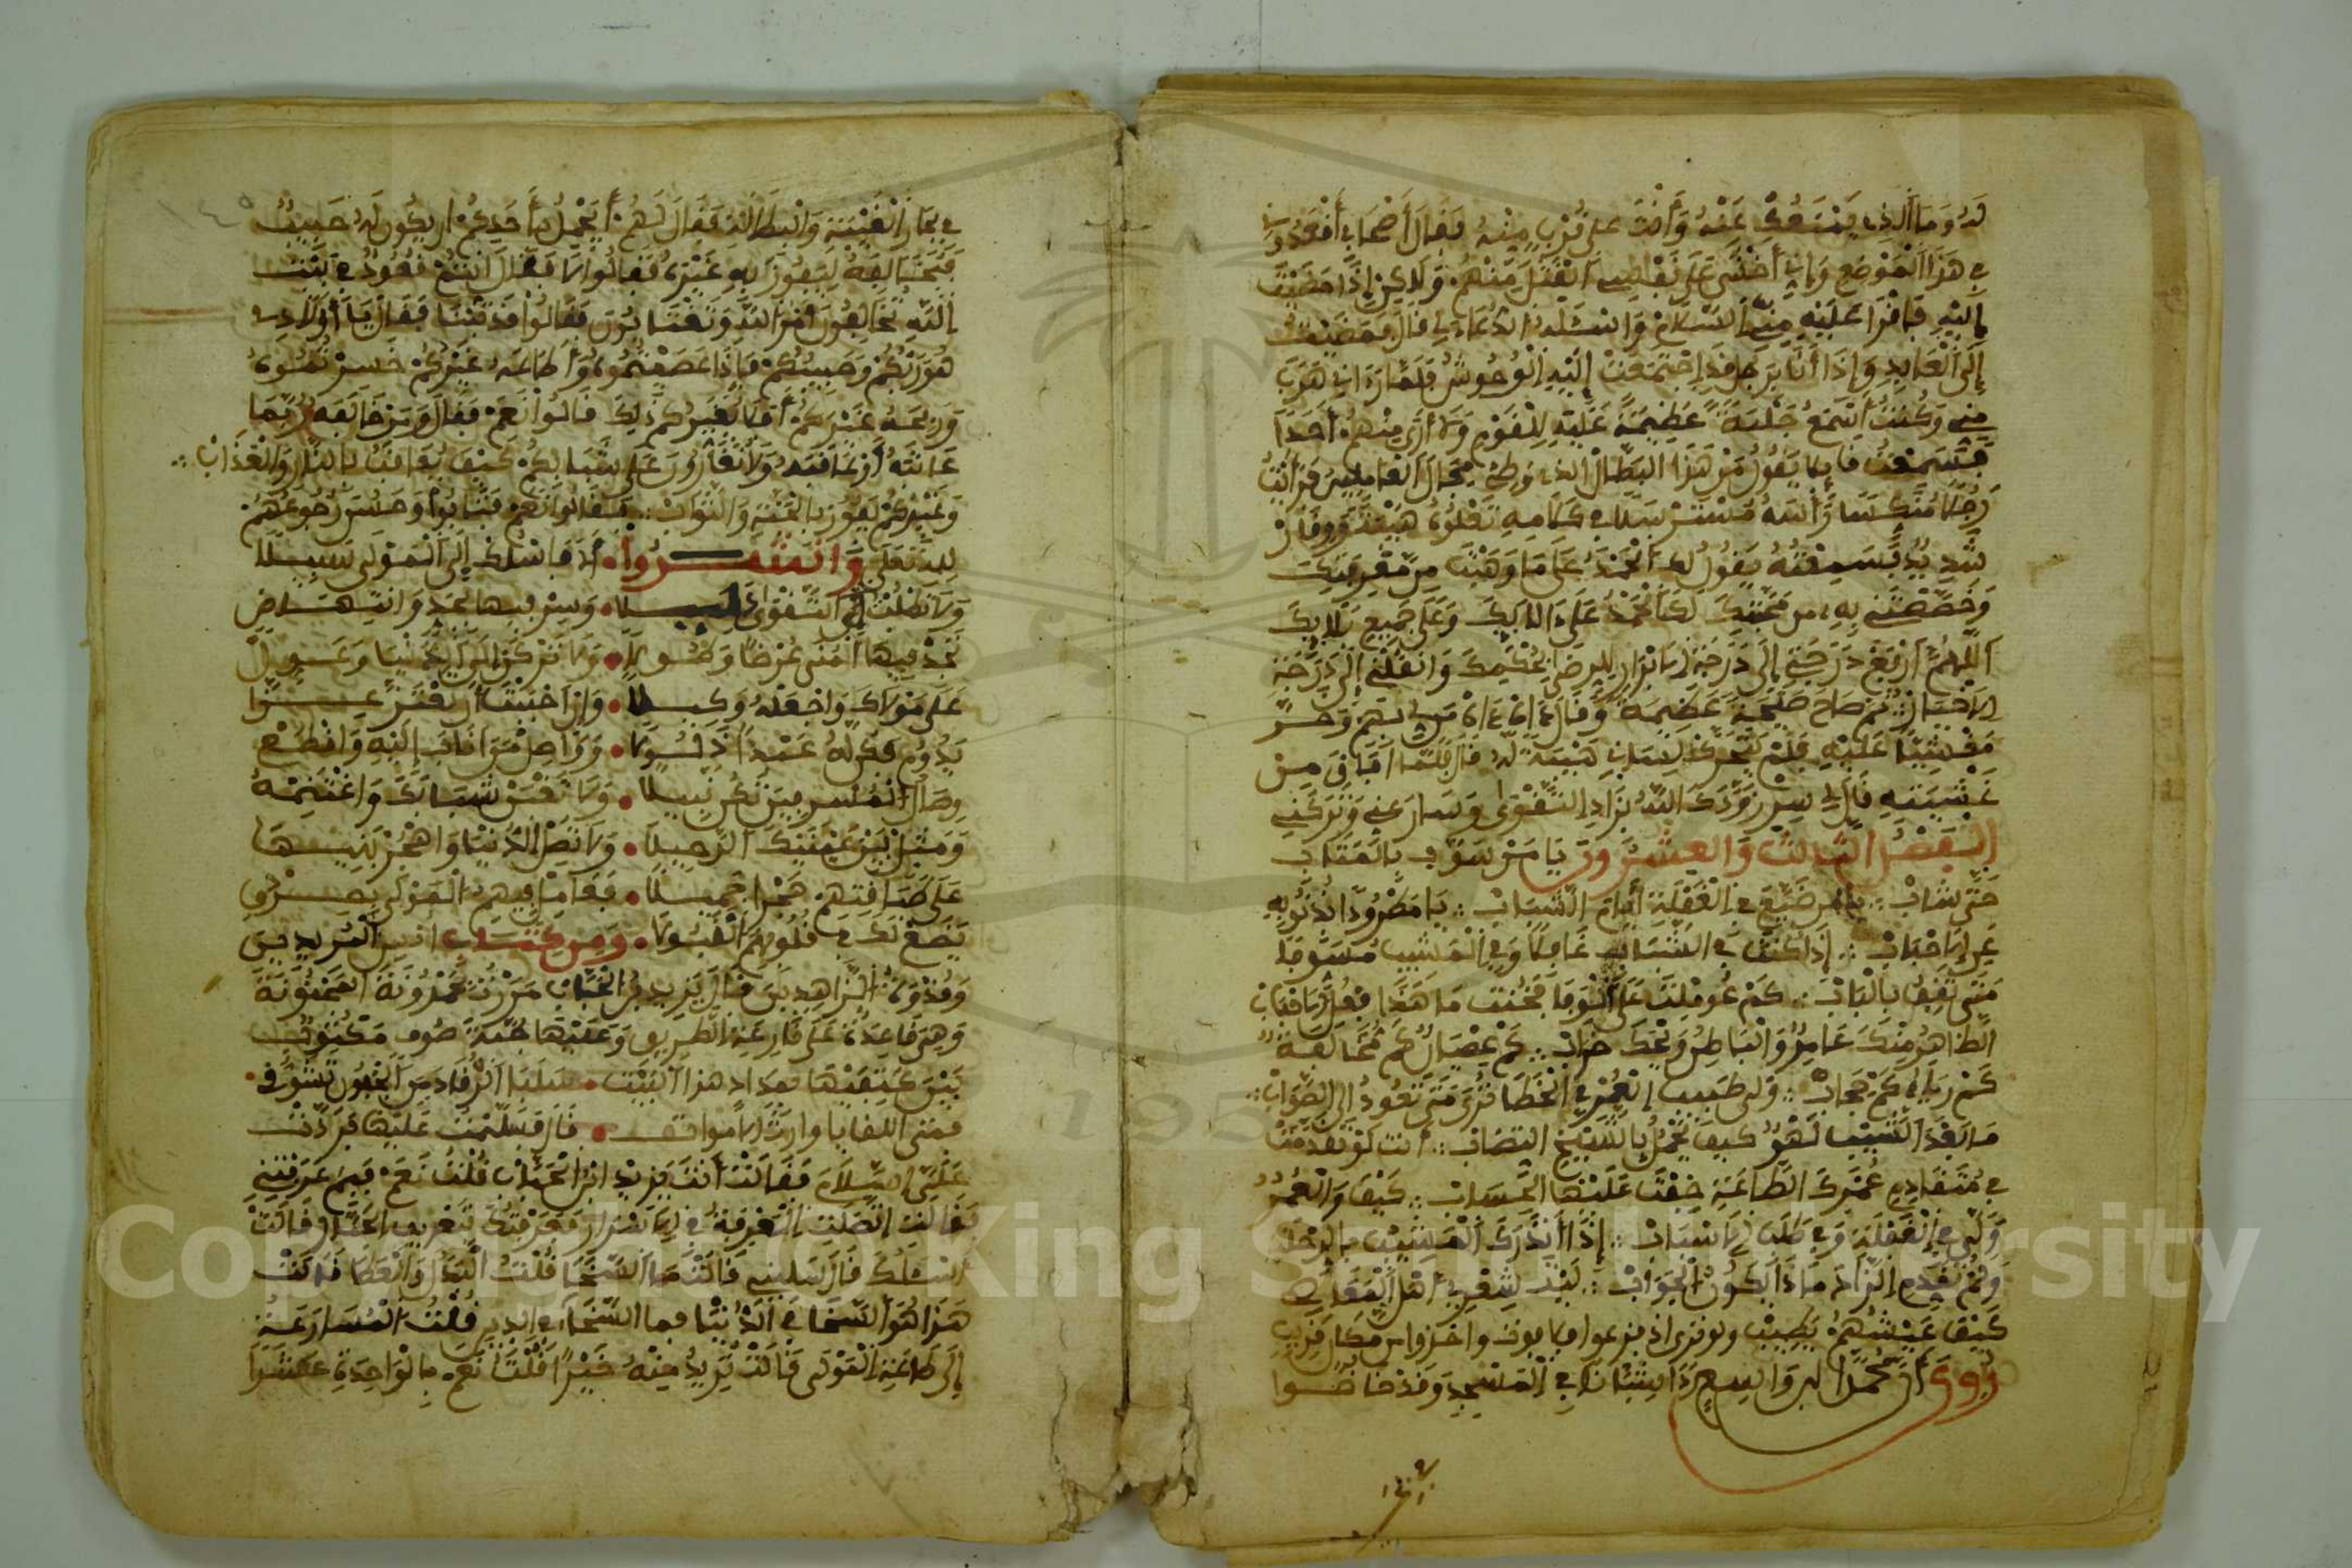 لَهُ وَمَا الَّذِي يَمْنَعُكَ عَنْهُ وَأَنْتَ عَلَى قُرْبٍ مِنْهُ فَقَالَ أَصْحَابِي أَقْعَدُونِي
فِي هَذَا الْمَوْضِعِ وَإِنِّي أَخْشَى عَلَى نَفْسِي الْقَتْلَ مِنْهُمْ وَلَكِنْ إِذَا مَضَيْتَ
إِلَيْهِ فَاقْرَأْ عَلَيْهِ مِنِّي السَّلَامَ وَاسْئَلْهُ الدُّعَاءَ لِي قَالَ فَمَضَيْتُ
إِلَى الْعَابِدِ وَإِذَا أَنَا بِرَجُلٍ قَدِ اجْتَمَعَتْ إِلَيْهِ الْوُحُوشُ فَلَمَّا رَآنِي هَرَبَ
مِنِّي وَكُنْتُ أَسْمَعُ جَلَبَةً عَظِيمَةً عَلَيْهِ لِلْقَوْمِ وَلَا أَرَى مِنْهُمْ أَحَدًا
فَسَمِعْتُ قَائِلًا يَقُولُ مَنْ هَذَا الْبَطَّالُ الَّذِي وَطِئَ مَجَالَ الْعَامِلِينَ فَرَأَيْتُ
رَجُلًا مُنَكِّسًا رَأْسَهُ مُسْتَرْسِلًا فِي كَلَامِهِ تَعْلُوهُ هَيْبَةٌ وَوَقَارٌ
شَدِيدٌ فَسَمِعْتُهُ يَقُولُ لَكَ الْحَمْدُ عَلَى مَا وَهَبْتَ مِنْ مَعْرِفَتِكَ
وَخَصَّصْتَنِي بِهِ مِنْ مَحَبَّتِكَ لَكَ الْحَمْدُ عَلَى آلَائِكَ وَعَلَى جَمِيعِ بَلَائِكَ
اللَّهُمَّ ارْفَعْ دَرَجَتِي إِلَى دَرَجَةِ الْأَبْرَارِ لِلرِّضَى بِحُكْمِكَ وَانْقُلْنِي إِلَى دَرَجَةِ
الْأَخْيَارِ ثُمَّ صَاحَ صَيْحَةً عَظِيمَةً وَقَالَ آهْ آهْ مَنْ لِي بِهِمْ وَخَرَّ
مَغْشِيًّا عَلَيْهِ فَلَمْ يَتَحَرَّكْ لِسَانِي هَيْبَةً لَهُ قَالَ فَلَمَّا أَفَاقَ مِنْ
غَشْيَتِهِ قَالَ لِي سِرْ زَوَّدَكَ اللَّهُ بِزَادِ التَّقْوَى وَسَارَ عَنِّي وَتَرَكَنِي
الْفَصْلُ الثَّالِثُ وَالْعِشْرُونَ يَا مَنْ سَوَّفَ بِالْمَتَابِ
حَتَّى شَابْ يَا مَنْ ضَيَّعَ فِي الْغَفْلَةِ أَيَّامَ الشَّبَابْ يَا مَطْرُودًا بِذُنُوبِهِ
عَنِ الْأَحْبَابْ إِذَا كُنْتَ فِي الشَّبَابِ غَافِلًا وَفِي الْمَشِيبِ مُسَوِّفًا
مَتَى تَقِفُ بِالْبَابْ كَمْ عُومِلْتَ عَلَى الْوَفَا فَخُنْتَ مَا هَذَا فِعْلُ الْأَحْبَابْ
الظَّاهِرُ مِنْكَ عَامِرٌ وَالْبَاطِنُ وَيْحَكَ خَرَابْ كَمْ عِصْيَانٌ كَمْ مُخَالَفَةٌ
كَمْ رِيَاءٌ كَمْ حِجَابْ وَلَّى طِيبُ الْعُمْرِ فِي الْخَطَا تُرَى مَتَى تَعُودُ إِلَى الصَّوَابْ
مَا بَعْدَ الشَّيْبِ لَهْوٌ كَيْفَ يَجْمُلُ بِالشَّيْخِ التَّصَابْ أَنْتَ لَوْ قَدَّمْتَ
فِي مُتَقَادِمِ عُمْرِكَ الطَّاعَةَ خَفَّتْ عَلَيْكَ الْحِسَابْ كَيْفَ وَالْعُمْرُ
وَلَّى فِي الْغَفْلَةِ وَفِي طَلَبِ الْأَسْبَابْ إِذَا أَنْذَرَكَ الْمَشِيبُ بِالرَّحِيلِ
وَلَمْ تُقَدِّمِ الزَّادَ مَاذَا يَكُونُ الْجَوَابْ لَيْتَ شِعْرِي أَهْلَ الْمَعَاصِي
كَيْفَ عَيْشُهُمْ يَطِيبْ وَلَوْ تَرَى إِذْ فَزِعُوا فَلَا فَوْتَ وَأُخِذُوا مِنْ مَكَانٍ قَرِيبٍ
رُوِيَ أَنَّ مُحَمَّدَ ابْنَ وَاسِعٍ رَأَى شَبَابًا فِي الْمَسْجِدِ وَقَدْ خَاضُوا
فِي بِحَارِ الْغِيبَةِ وَالْبَطَالَةِ فَقَالَ لَهُمْ أَيَجْمُلُ بِأَحَدِكُمْ أَنْ يَكُونَ لَهُ حَبِيبٌ
فَيُخَالِفَهُ لِيَفُوزَ بِهِ غَيْرُهُ فَقَالُوا لَا فَقَالَ أَنْتُمْ قُعُودٌ فِي بَيْتِ
اللَّهِ تُخَالِفُونَ أَمْرَ اللَّهِ وَتَغْتَابُونَ فَقَالُوا قَدْ تُبْنَا فَقَالَ يَا أَوْلَادِي
هُوَ رَبُّكُمْ وَحَبِيبُكُمْ فَإِذَا عَصَيْتُمُوهُ وَأَطَاعَهُ غَيْرُكُمْ خَسِرْتُمُوهُ
وَرَبِحَهُ غَيْرُكُمْ أَفَلَا يَضُرُّكُمْ ذَلِكَ قَالُوا نَعَمْ فَقَالَ وَمَنْ خَالَفَهُ رُبَّمَا
عَاتَبَهُ أَوْ عَاقَبَهُ وَلَا تَغَارُونَ عَلَى شَبَابِكُمْ كَيْفَ يُعَاقَبُ بِالنَّارِ وَالْعَذَابْ
وَغَيْرُكُمْ يَفُوزُ بِالْجَنَّةِ وَالثَّوَابْ فَقَالُوا نَعَمْ فَتَابُوا وَحَسُنَ رُجُوعُهُمْ
لِلَّهِ تَعَالَى وَأَنْشَدُوا أَلَا فَاسْلُكْ إِلَى الْمَوْلَى سَبِيلَا
وَلَا تَطْلُبْ سِوَى التَّقْوَى وَسِرْ فِيهَا بِجِدٍّ وَانْتِهَاضٍ
تَجِدْ فِيهَا الْمُنَى عَرْضًا وَطُولَا وَلَا تَرْكَنْ إِلَى الدُّنْيَا وَعَوِّلْ
عَلَى مَوْلَاكَ وَاجْعَلْهُ وَكِيلَا وَإِنْ أَحْبَبْتَ أَنْ تَعْتَزَّ عِزًّا
يَدُومُ فَكُنْ لَهُ عَبْدًا ذَلِيلَا وَوَاصِلْ مَنْ أَنَابَ إِلَيْهِ وَاقْطَعْ
وِصَالَ الْمُسْرِفِينَ تَكُنْ نَبِيلَا وَلَا تُفْنِ شَبَابَكَ وَاغْتَنِمْهُ
وَمَثِّلْ بَيْنَ عَيْنَيْكَ الرَّحِيلَا وَلَا تَصِلِ الدُّنْيَا وَاهْجُرْ بَنِيهَا
عَلَى طَبَقَاتِهِمْ هَجْرًا جَمِيلَا فَعَامِلْ فِيهِمُ الْمَوْلَى بِصِدْقٍ
يَضَعْ لَكَ فِي قُلُوبِهِمُ الْقَبُولَا وَمِنْ كِتَابِ أُنْسِ الْمُرِيدِينَ
وَقُدْوَةِ الزَّاهِدِينَ قَالَ يَزِيدُ بْنُ الْحُبَابِ مَرَرْتُ بِحَمْدُونَةَ الْمَجْنُونَةِ
وَهِيَ قَاعِدَةٌ عَلَى قَارِعَةِ الطَّرِيقِ وَعَلَيْهَا جُبَّةُ صُوفٍ مَكْتُوبٌ
بَيْنَ كَتِفَيْهَا هَذَا الْبَيْتْ سَلَبَ الرُّقَادَ مِنَ الْجُفُونِ تَشَوُّقِي
فَمَتَى اللِّقَا يَا وَارِثَ الْأَمْوَاتِ قَالَ فَسَلَّمْتُ عَلَيْهَا فَرَدَّتْ
عَلَيَّ السَّلَامَ فَقَالَتْ أَنْتَ يَزِيدُ ابْنُ الْحُبَابِ قُلْتُ نَعَمْ فَبِمَ عَرَفْتِنِي
فَقَالَتِ اتَّصَلَتِ الْمَعْرِفَةُ فِي الْأَسْرَارِ فَعَرَفْتُكَ بِتَعْرِيفِ الْجَبَّارِ وَقَالَتْ
أَسْئَلُكَ قَالَ سَلِينِي قَالَتْ مَا السَّخَا قُلْتُ الْبَذْلُ وَالْعَطَا قَالَتْ
هَذَا هُوَ السَّخَا فِي الدُّنْيَا فَمَا السَّخَاءُ فِي الدِّينِ قُلْتُ الْمُسَارَعَةُ
إِلَى طَاعَةِ الْمَوْلَى قَالَتْ تُرِيدُ مِنْهُ خَيْرًا قُلْتُ نَعَمْ بِالْوَاحِدَةِ عَشْرًا
Copyright © King Saud University
195